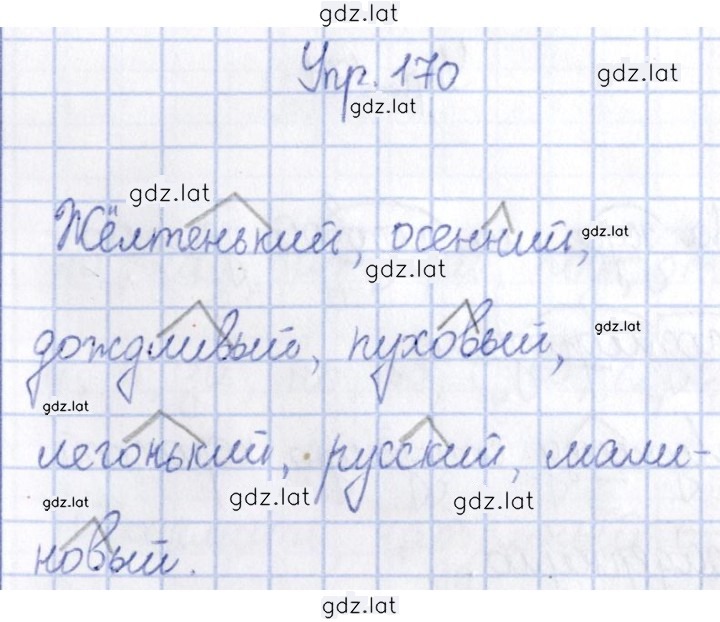 gdz.lat
Упр. 170
gdz.lat
gdz.lat
gdz.lat
Жёлтенький, осенний,
gdz.lat
gdz.lat
дождливый, пуховый,
gdz.lat
gdz.lat
легонький, русский, мали-
gdz.lat
gdz.lat
gdz.lat
новый.
gdz.lat